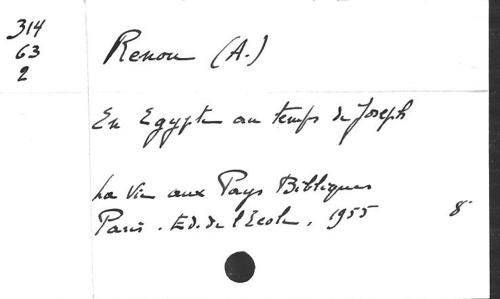 314
63
2
Renou (A.)
En Egypte au temps de Joseph
La Vie aux Pays Bibliques
Paris. Ed. de l'Ecole, 1955 8°